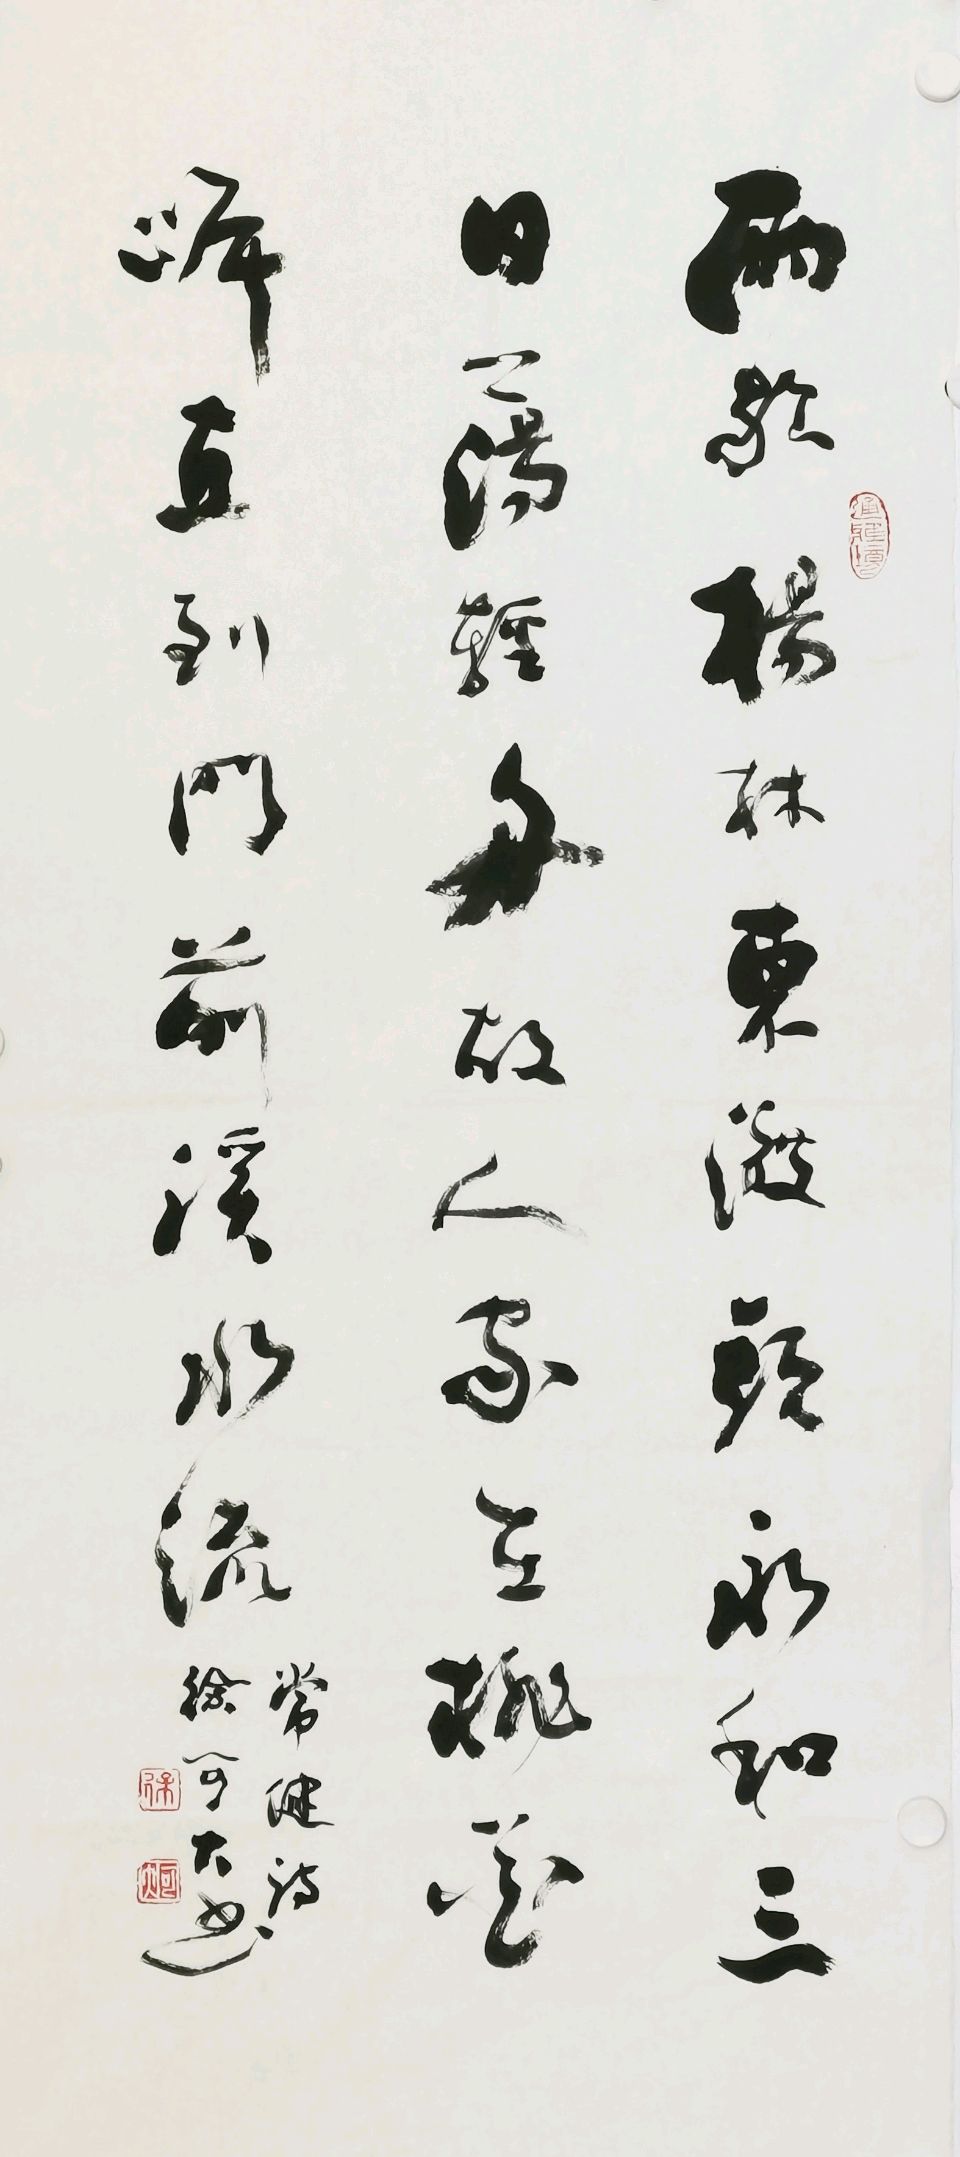 雨歇楊林東渡頭永和三
日蕩輕舟故人家在桃花
岸直到門前溪水流
常健詩
徐可大书